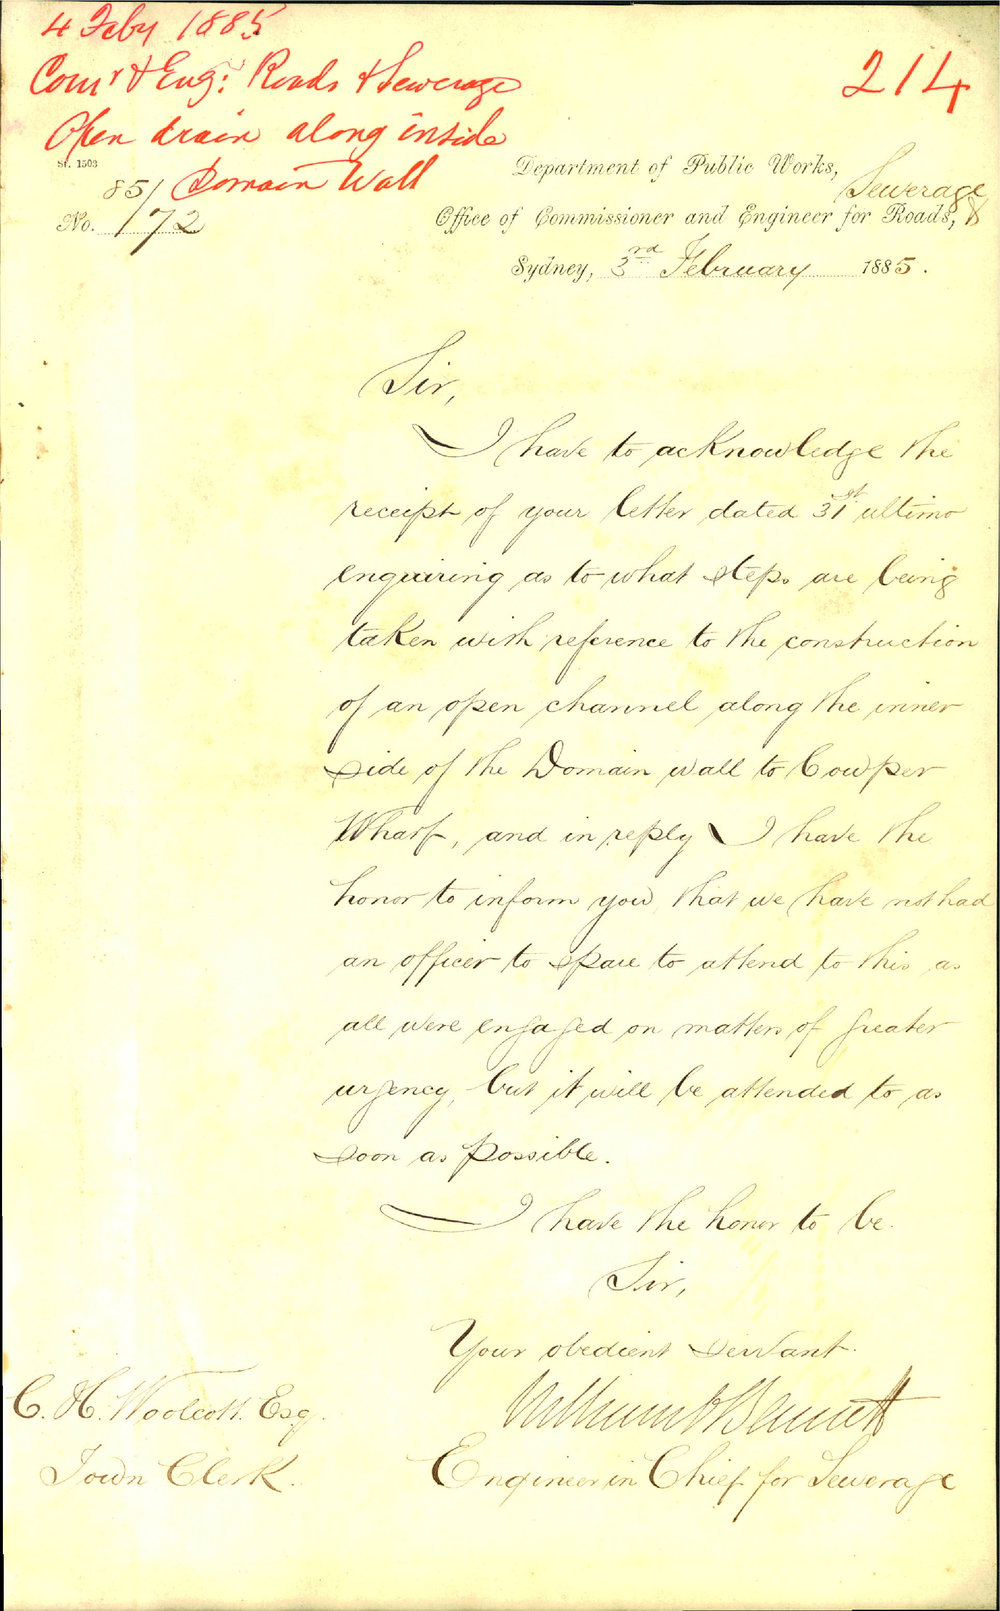 4 Feby 1885
Comr & Eng: Roads & Sewerage
Open drain along inside
Domain Wall
214
St. 1503
85/
No. 172
Department of Public Works,
Sewerage &
Office of Commissioner and Engineer for Roads,
Sydney, 3rd February 1885.
Sir,
I have to acknowledge the
receipt of your letter dated 31st ultimo
enquiring as to what steps are being
taken with reference to the construction
of an open channel along the inner
side of the Domain wall to Cowper
Wharf, and in reply I have the
honor to inform you, that we have not had
an officer to spare to attend to this as
all were engaged on matters of greater
urgency, but it will be attended to as
soon as possible.
I have the honor to be.
Sir,
Your obedient servant.
William C Bennett
Engineer in Chief for Sewerage
C. H. Woolcott. Esq.
Town Clerk.